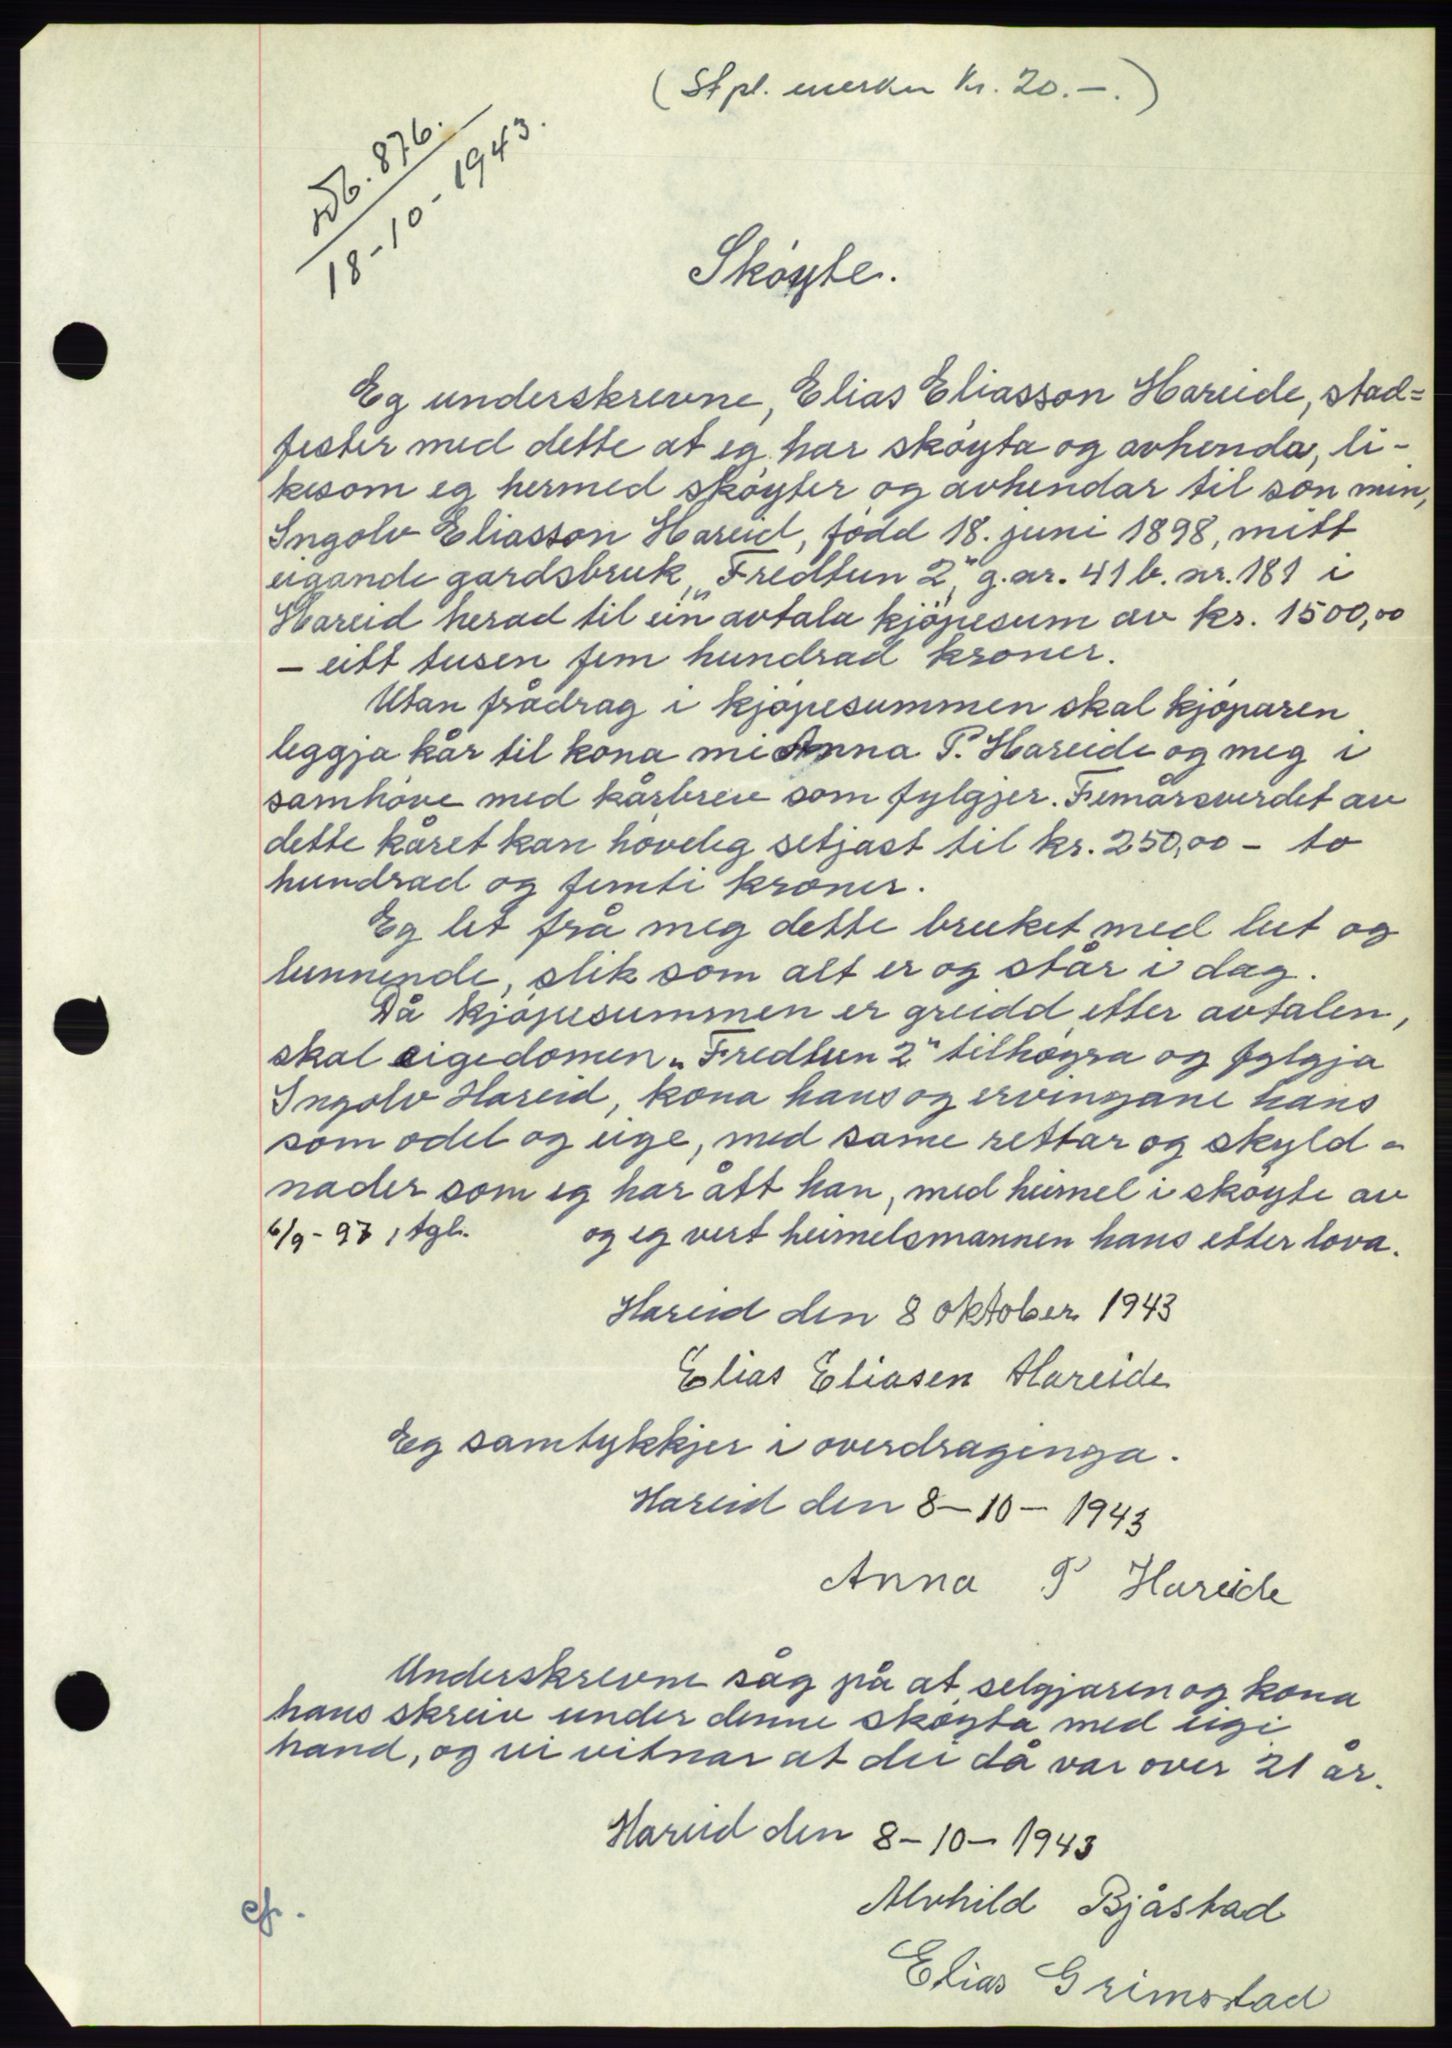 (Stpl. merker Kr. 20.-.)
Db. 876.
18-10-1943.
Skøyte.
Eg underskrevne, Elias Eliasson Hareide, stad=
fester med dette at eg har skøyta og avhenda, li-
kesom eg hermed skøyter og avhendar til son min,
Ingolv Eliasson Hareid, fødd 18. juni 1898, mitt
eigande gardsbruk „Fredtun 2" g.nr. 41 b. nr. 181 i
Hareid herad til ein avtala kjøpesum av kr. 1500,00
- eitt tusen fem hundrad kroner.
Utan frådrag i kjøpesummen skal kjøparen
leggja kår til kona mi Anna P. Hareide og meg i
samhøve med kårbrev som fylgjer. Femårsverdet av
dette kåret kan høveleg setjast til kr. 250,00 - to
hundrad og femti kroner.
Eg let frå meg dette bruket med lut og
lunnende, slik som alt er og står i dag.
Då kjøpesummen er greidd etter avtalen,
skal eigedomen „Fredtun 2" tilhøyra og fylgja
Ingolv Hareid, kona hans og ervingane hans
som odel og eige, med same rettar og skyld-
nader som eg har ått han, med heimel i skøyte av
6/9-97, tgl. og eg vert heimelsmannen hans etter lova.
Hareid den 8 oktober 1943
Elias Eliasen Hareide
Eg samtykkjer i overdraginga.
Hareid den 8-10-1943
Anna P Hareide
Underskrevne såg på at selgjaren og kona
hans skreiv under denne skøyta med eigi
hand, og vi vitnar at dei då var over 21 år.
Hareid den 8-10-1943
Alvhild Bjåstad
Elias Grimstad